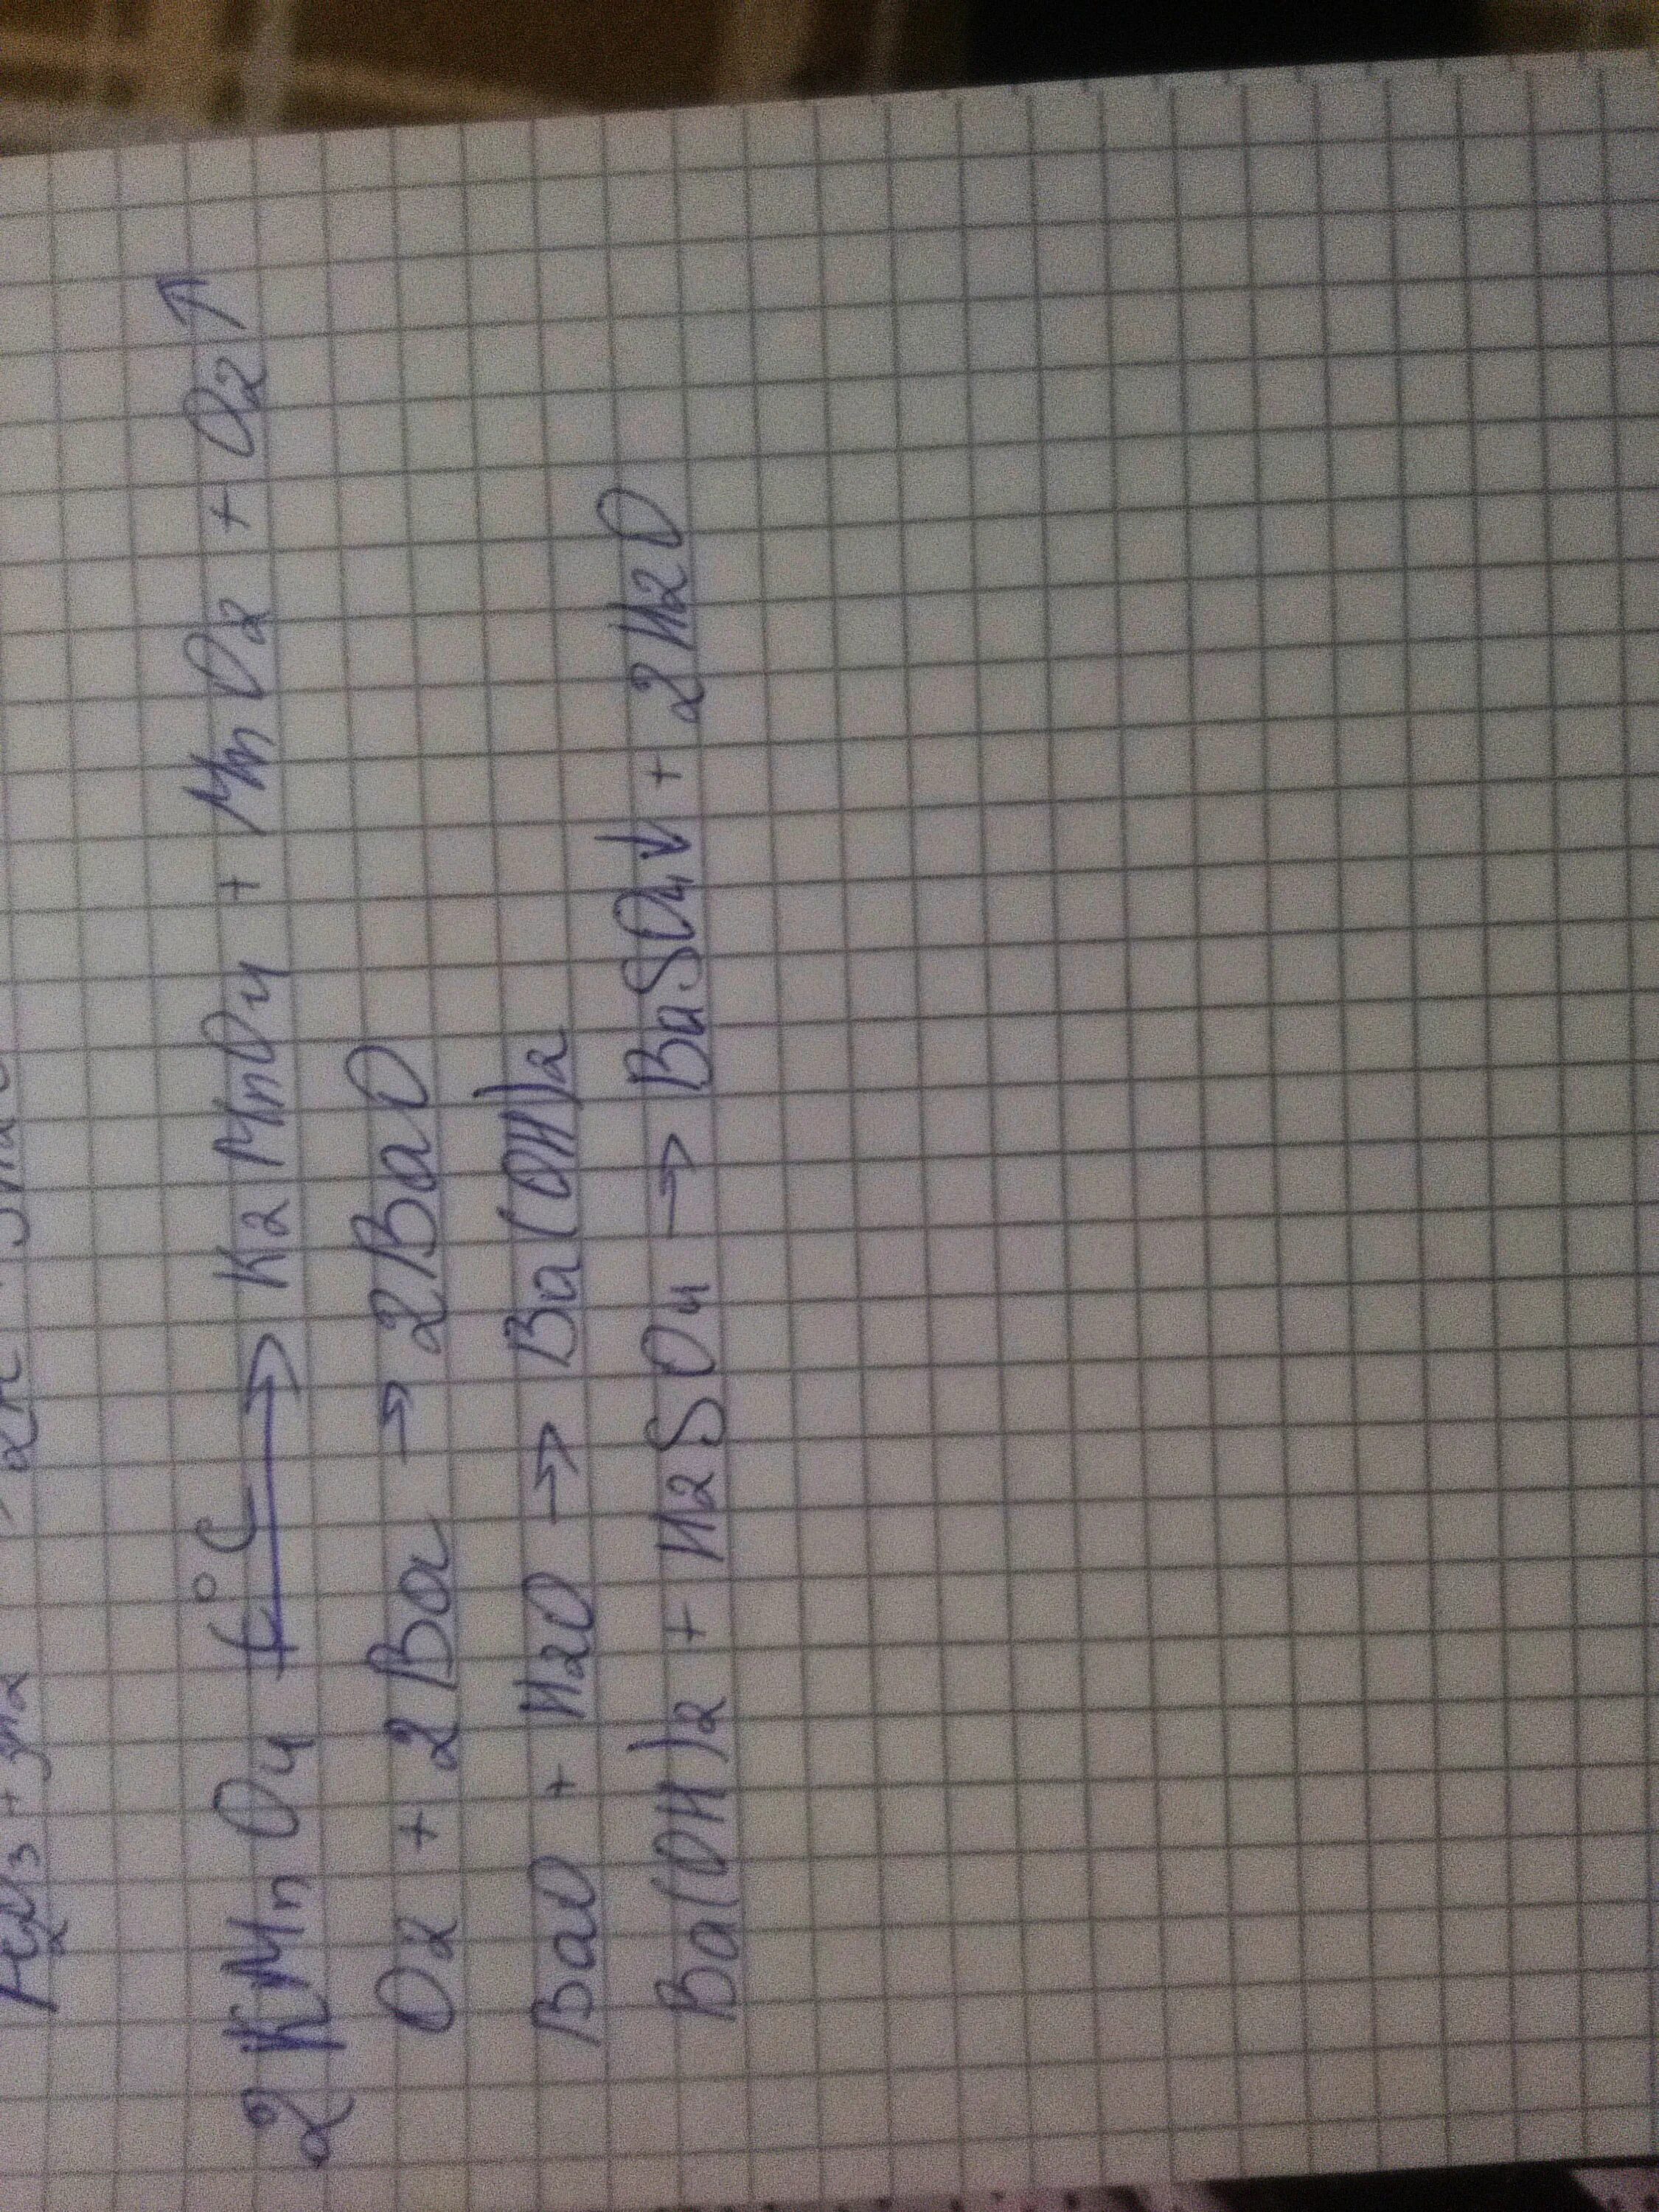 2KMnO4 t°C→ K2MnO4 + MnO2 + O2↑
O2 + 2Ba → 2BaO
BaO + H2O → Ba(OH)2
Ba(OH)2 + H2SO4 → BaSO4↓ + 2H2O